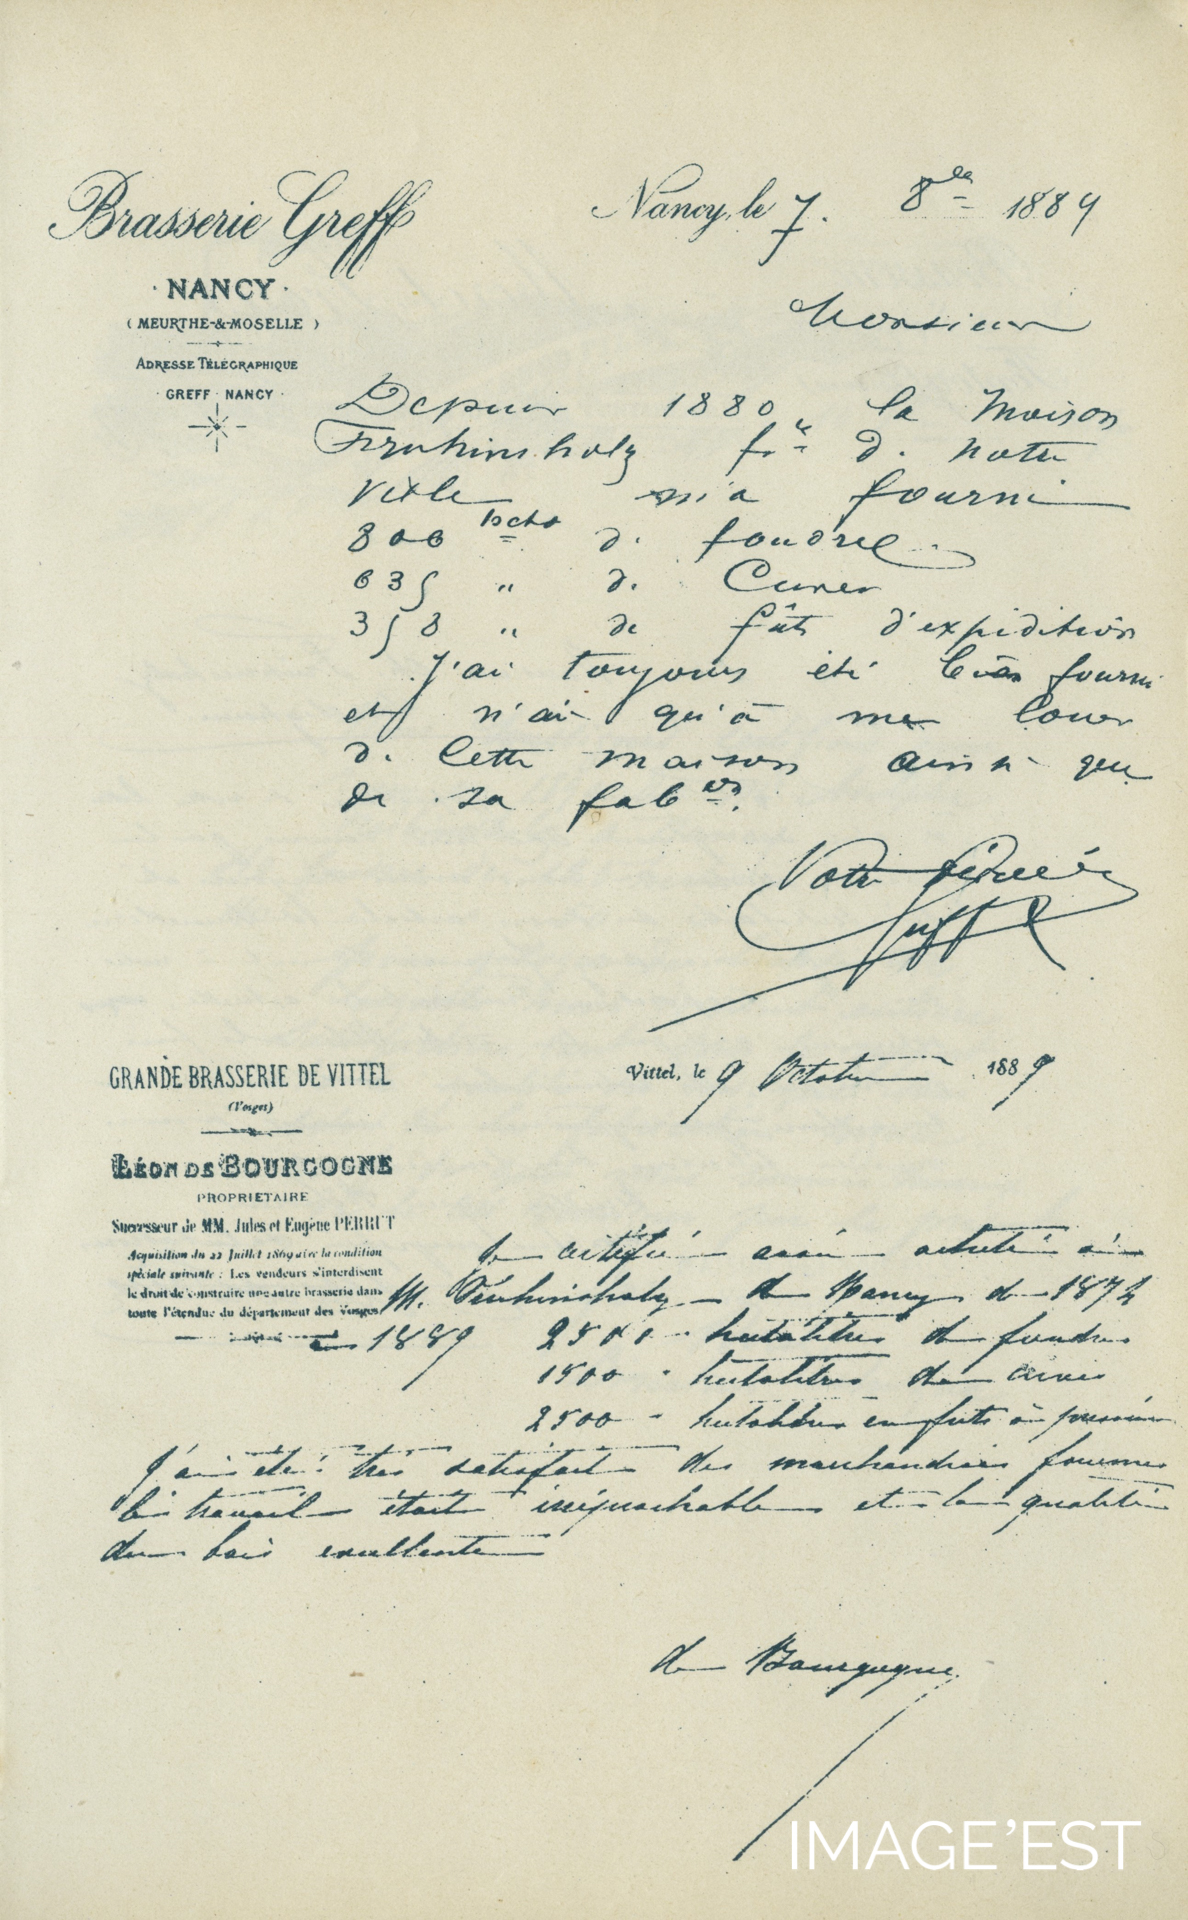 Brasserie Greff
· NANCY ·
( MEURTHE-&-MOSELLE )
ADRESSE TÉLÉGRAPHIQUE
· GREFF · NANCY ·
Nancy, le 7. 8bre 1889
Monsieur
Depuis 1880, la Maison
Fruhinsholz fr de notre
ville m'a fourni
800 hectos de foudres
635 " de Cuves
358 " de fûts d'expédition
J'ai toujours été bien fourni
et n'ai qu'à me louer
de cette maison ainsi que
de sa fabon.
Votre dévoué
Greff
GRANDE BRASSERIE DE VITTEL
(Vosges)
LÉON DE BOURGOGNE
PROPRIÉTAIRE
Successeur de MM. Jules et Eugène PERRUT
Acquisition du 22 Juillet 1869 avec la condition
spéciale suivante : Les vendeurs s'interdisent
le droit de construire une autre brasserie dans
toute l'étendue du département des Vosges
Vittel, le 9 Octobre 1889
Je certifie avoir acheté à
M. Fruhinsholz de Nancy de 1872
à 1889 2500 hectolitres de foudres
1500 - hectolitres de cuves
2500 - hectolitres en futs à
J'ai été très satisfait des marchandises fournies
le travail était irréprochable et la qualité
du bois excellente
de Bourgogne
IMAGE'EST